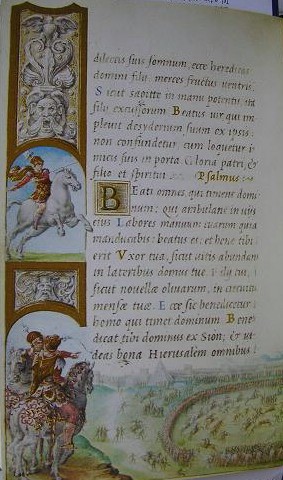 dilectis suis somnum, ecce heredita
domini filij, merces fructus ventris.
Sicut sagitte in manu potentis ita
filij excussorum Beatus vir qui im
pleuit desyderium suum ex ipsis:
non confundetur cum loquetur i
micis suis in porta Gloria patri, &
filio et spiritui Psalmus
BEati omnes, qui timent domi
num: qui ambulant in vijs
eius Labores manuum tuarum quia
manducabis: beatus es, et bene tibi
erit Vxor tua, sicut uitis abundans
in lateribus domus tue Filij tui,
sicut nouellae oliuarum, in circuitu
mensae tuae. Ecce sic benedicetur
homo qui timet dominum Bene
dicat tibi dominus ex Sion; & ut
deas bona Hierusalem omnibus